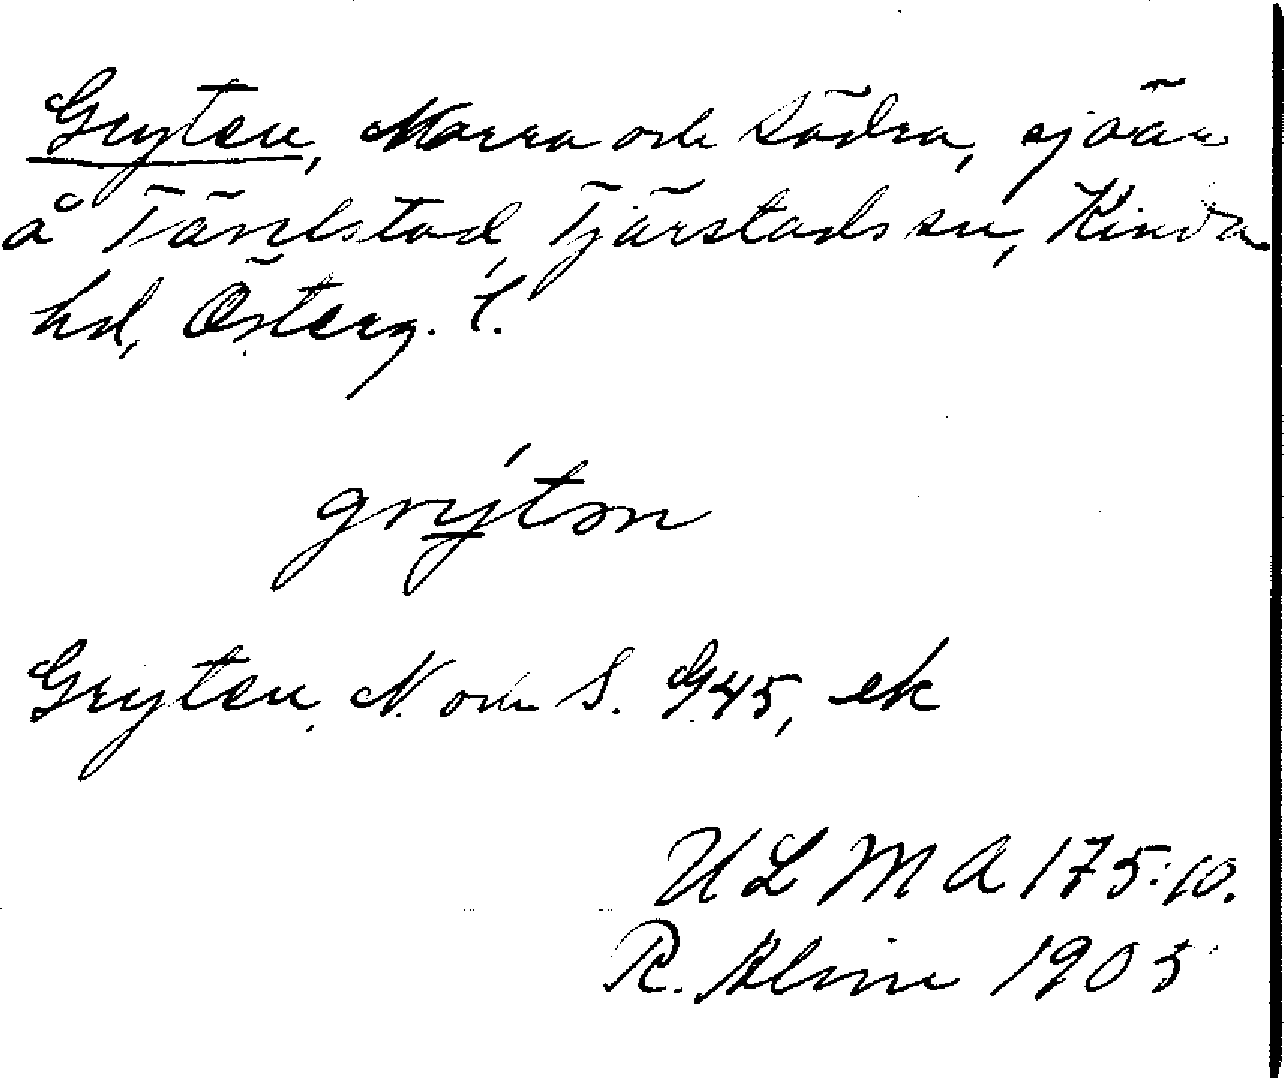 Gryten, Norra och Södra, sjöar
å Tjärstad, Tjärstads sn, Kinda
hd, Österg. l.
grýtən
Gryten, N. och S. G45, ek
ULMA 175:10.
R. Almin 1905